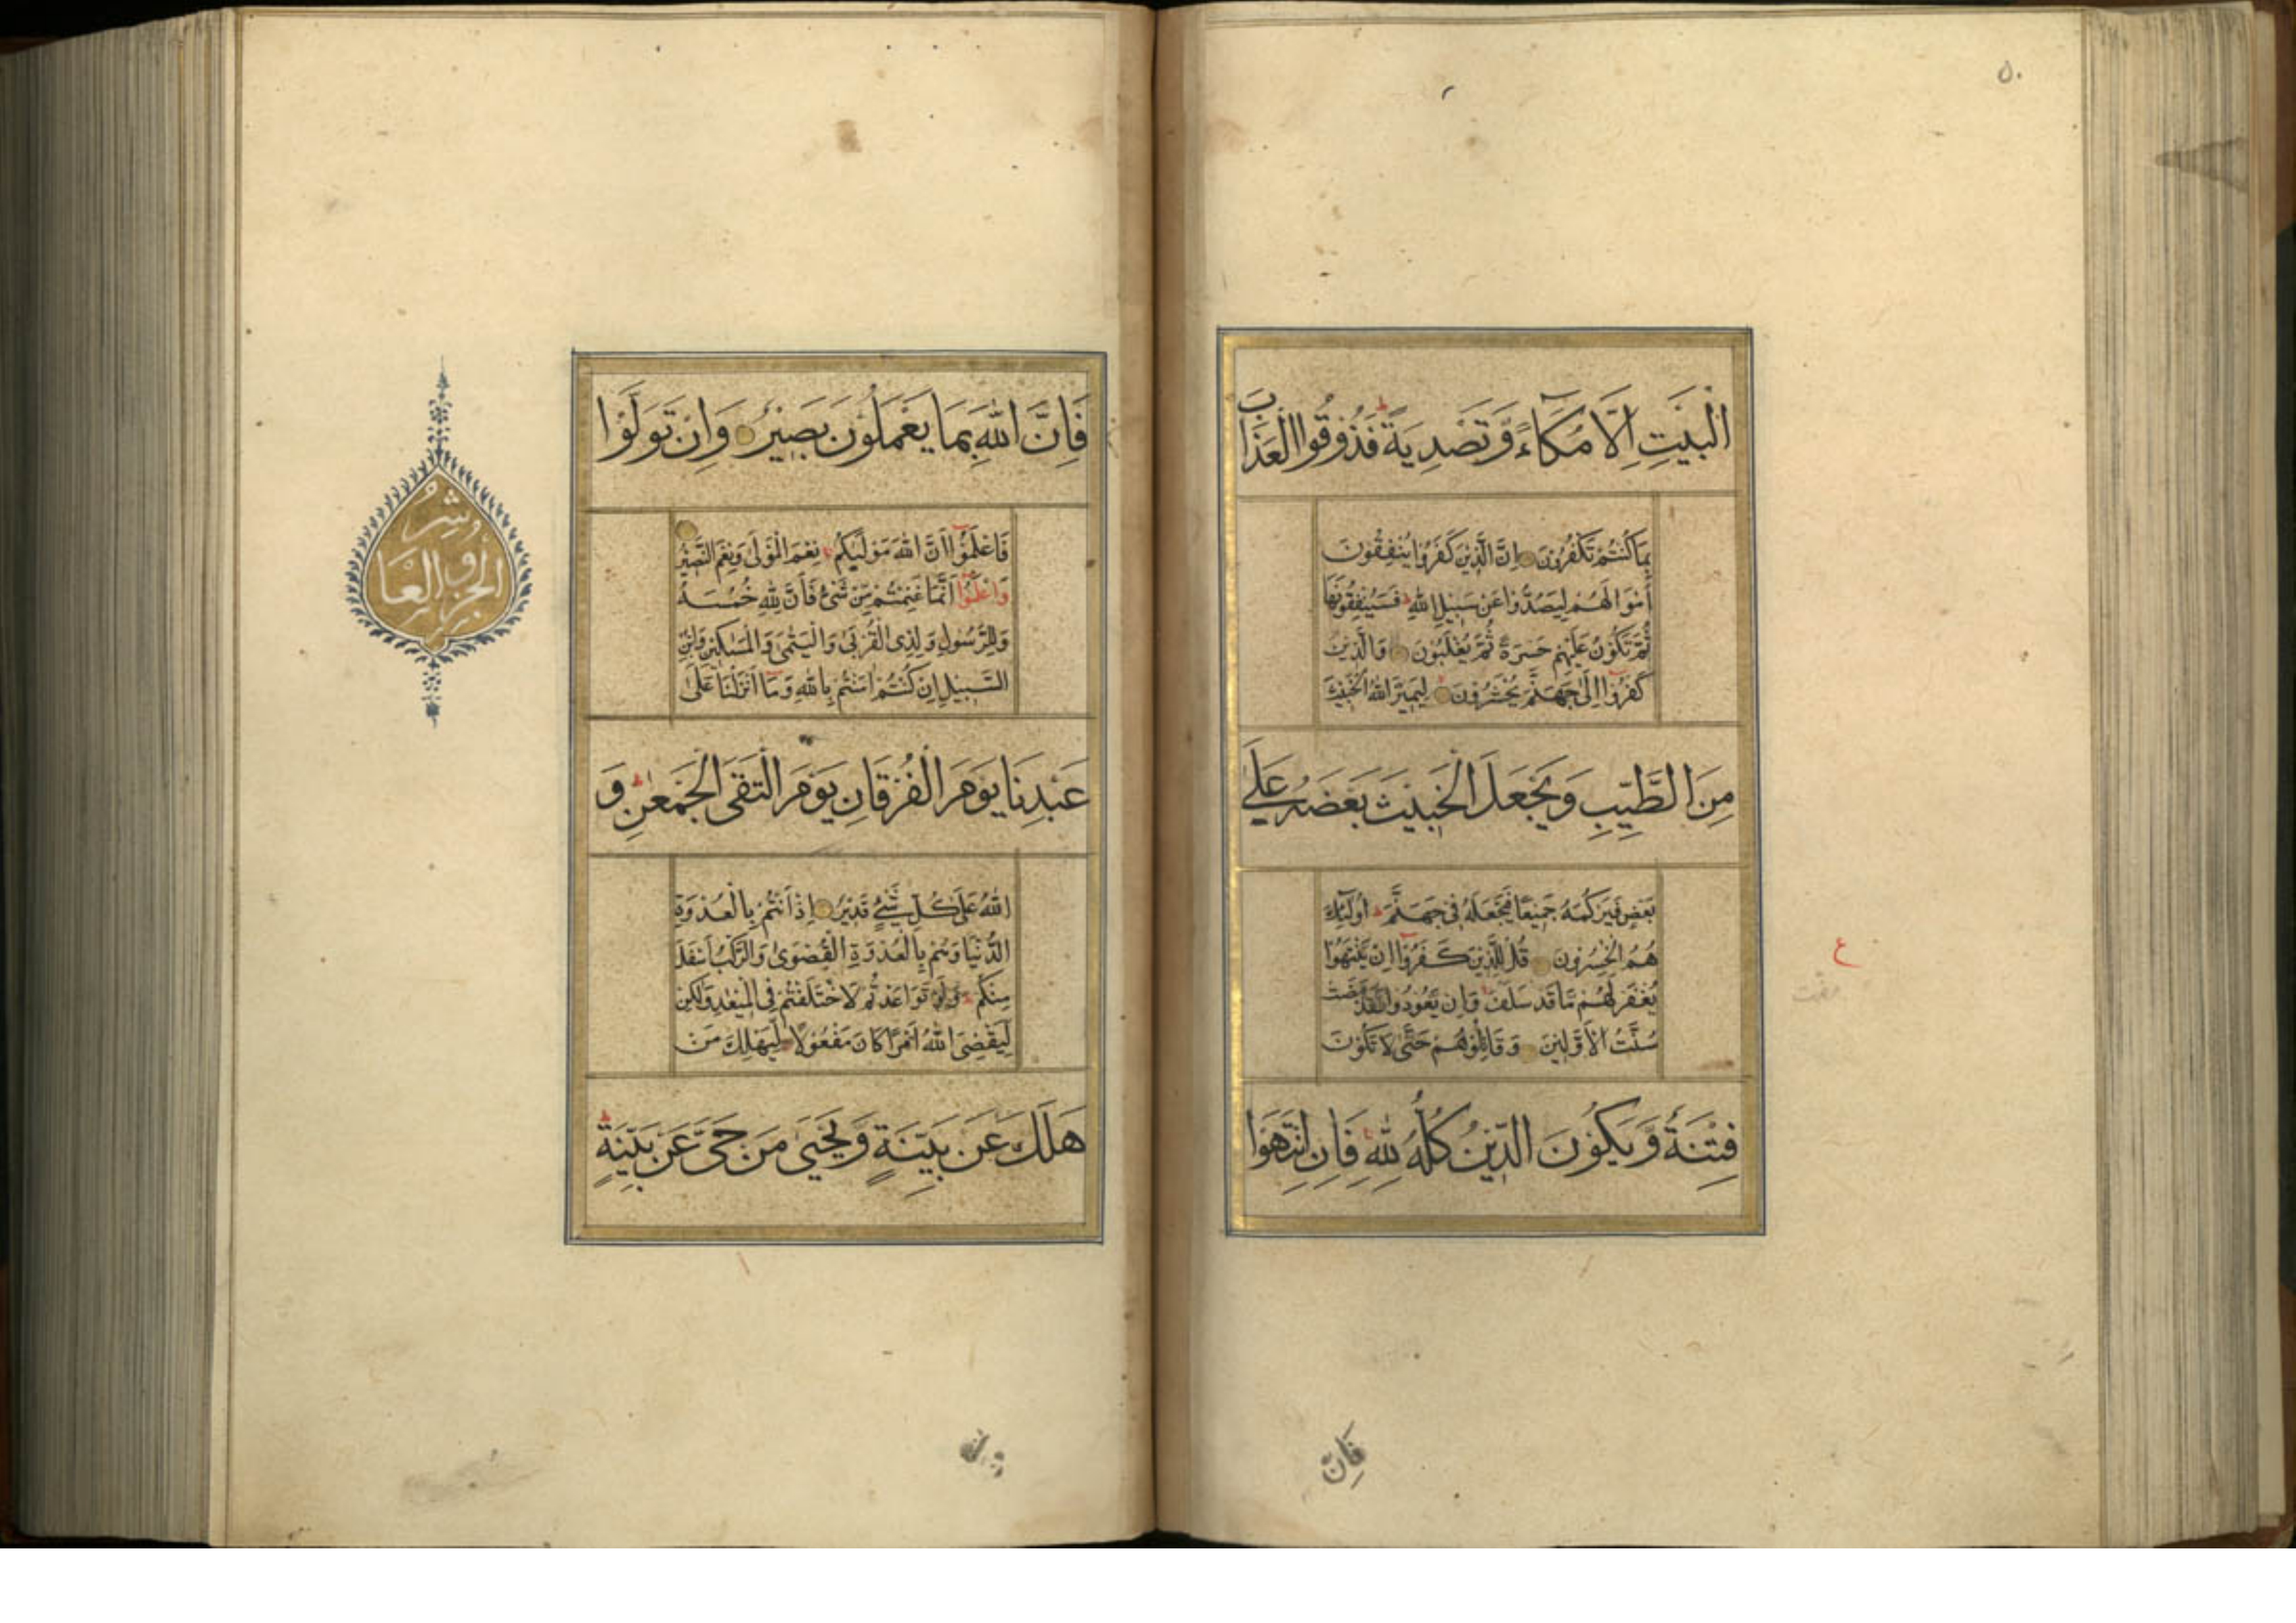 ٥٠
الْبَيْتِ اِلَّا مُكَآءً وَّتَصْدِيَةً ط فَذُوقُوا الْعَذَابَ
بِمَا كُنْتُمْ تَكْفُرُوْنَ اِنَّ الَّذِيْنَ كَفَرُوْا يُنْفِقُوْنَ
اَمْوَالَهُمْ لِيَصُدُّوْا عَنْ سَبِيْلِ اللّٰهِ ط فَسَيُنْفِقُوْنَهَا
ثُمَّ تَكُوْنُ عَلَيْهِمْ حَسْرَةً ثُمَّ يُغْلَبُوْنَ وَالَّذِيْنَ
كَفَرُوْٓا اِلٰى جَهَنَّمَ يُحْشَرُوْنَ لِيَمِيْزَ اللّٰهُ الْخَبِيْثَ
مِنَ الطَّيِّبِ وَيَجْعَلَ الْخَبِيْثَ بَعْضَهُ عَلٰى
بَعْضٍ فَيَرْكُمَهُ جَمِيْعًا فَيَجْعَلَهُ فِى جَهَنَّمَ ط اُولٰٓئِكَ
هُمُ الْخٰسِرُوْنَ قُلْ لِّلَّذِيْنَ كَفَرُوْٓا اِنْ يَّنْتَهُوْا
يُغْفَرْ لَهُمْ مَّا قَدْ سَلَفَ وَاِنْ يَّعُوْدُوْا فَقَدْ مَضَتْ
سُنَّتُ الْاَوَّلِيْنَ وَقَاتِلُوْهُمْ حَتّٰى لَا تَكُوْنَ
فِتْنَةٌ وَّيَكُوْنَ الدِّيْنُ كُلُّهُ لِلّٰهِ فَاِنِ انْتَهَوْا
ع
فَاِنَّ
فَاِنَّ اللّٰهَ بِمَا يَعْمَلُوْنَ بَصِيْرٌ وَاِنْ تَوَلَّوْا
فَاعْلَمُوْٓا اَنَّ اللّٰهَ مَوْلٰىكُمْ ط نِعْمَ الْمَوْلٰى وَنِعْمَ النَّصِيْرُ
وَاعْلَمُوْٓا اَنَّمَا غَنِمْتُمْ مِّنْ شَىْءٍ فَاَنَّ لِلّٰهِ خُمُسَهُ
وَلِلرَّسُوْلِ وَلِذِى الْقُرْبٰى وَالْيَتٰمٰى وَالْمَسٰكِيْنِ وَابْنِ
السَّبِيْلِ اِنْ كُنْتُمْ اٰمَنْتُمْ بِاللّٰهِ وَمَآ اَنْزَلْنَا عَلٰى
عَبْدِنَا يَوْمَ الْفُرْقَانِ يَوْمَ الْتَقَى الْجَمْعٰنِ ط وَ
اللّٰهُ عَلٰى كُلِّ شَىْءٍ قَدِيْرٌ اِذْ اَنْتُمْ بِالْعُدْوَةِ
الدُّنْيَا وَهُمْ بِالْعُدْوَةِ الْقُصْوٰى وَالرَّكْبُ اَسْفَلَ
مِنْكُمْ ط وَلَوْ تَوَاعَدْتُّمْ لَاخْتَلَفْتُمْ فِى الْمِيْعٰدِ وَلٰكِنْ
لِّيَقْضِىَ اللّٰهُ اَمْرًا كَانَ مَفْعُوْلًا لِّيَهْلِكَ مَنْ
هَلَكَ عَنْ بَيِّنَةٍ وَّيَحْيٰى مَنْ حَىَّ عَنْ بَيِّنَةٍ ط
الجزؤ العاشر